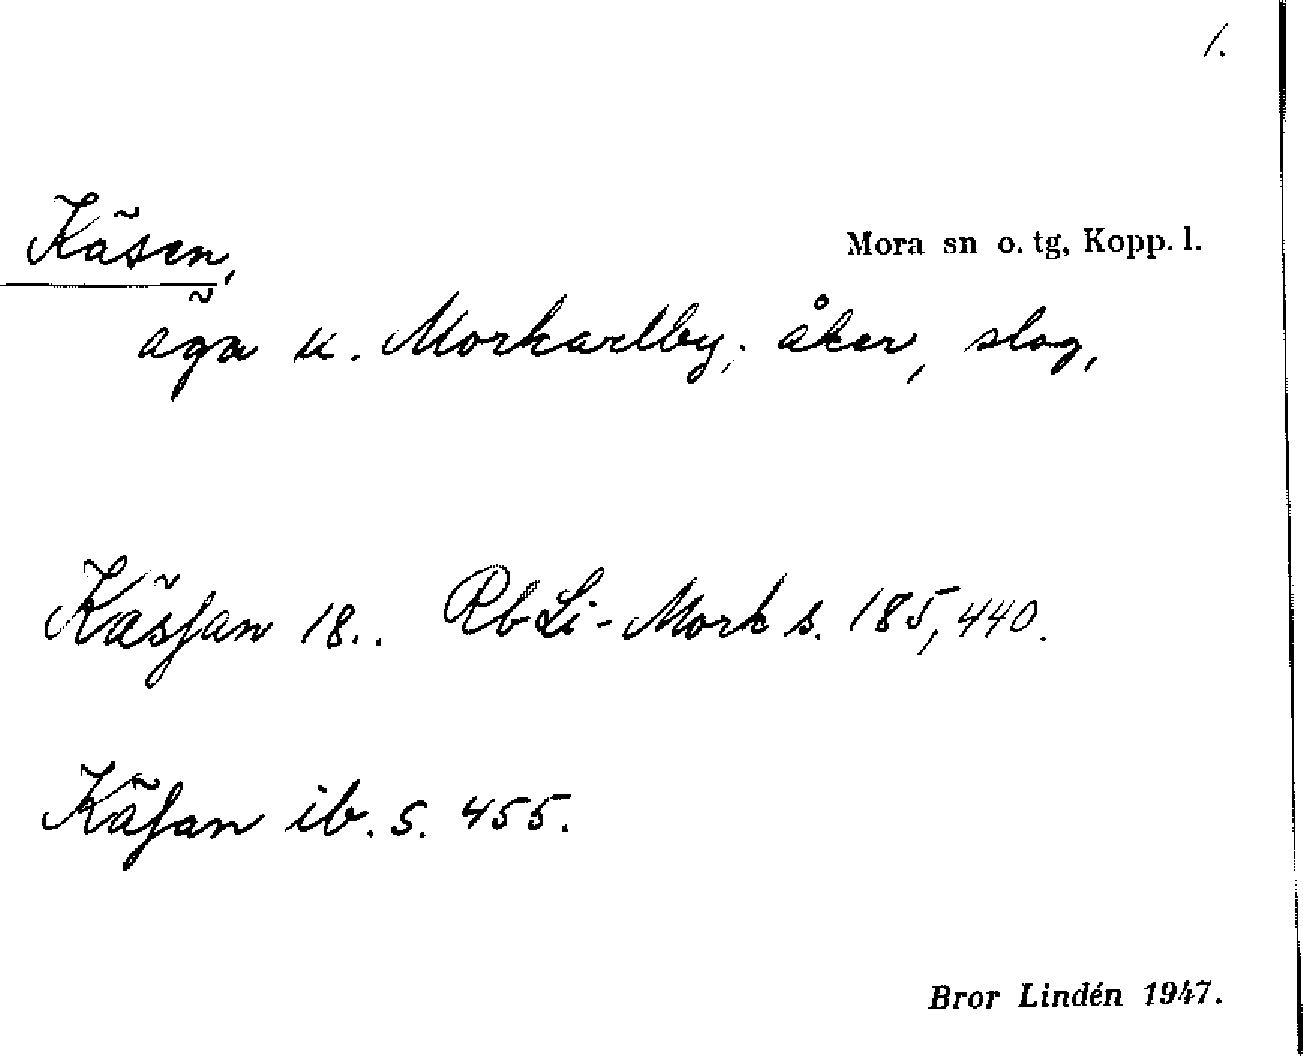 1.
Käsen,
Mora sn o. tg, Kopp. l.
äga u. Morkarlby; åker, slog,
Käsſan 18.. RbLi-Mork s. 185, 440.
Käſan ib. s. 455.
Bror Lindén 1947.